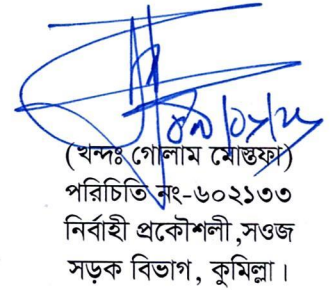 (খন্দঃ গোলাম মোস্তফা)
পরিচিতি নং-৬০২১৩৩
নির্বাহী প্রকৌশলী,সওজ
সড়ক বিভাগ, কুমিল্লা।